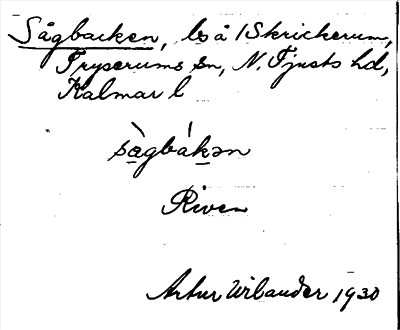 Sågbacken, ls å 1 Skrickerum,
Tryserums sn, N. Tjusts hd,
Kalmar l
sàgbákən
Riven
Artur Wilander 1930